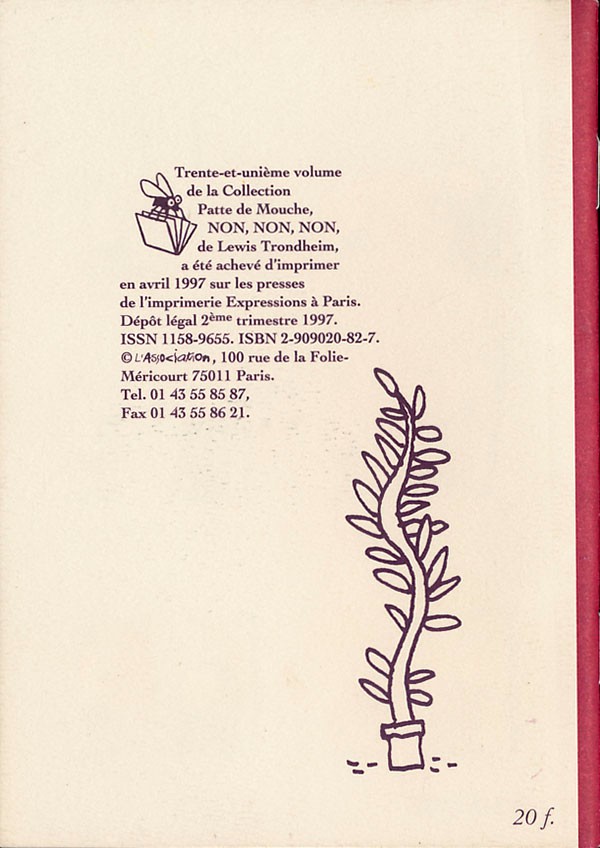 Trente-et-unième volume
de la Collection
Patte de Mouche,
NON, NON, NON,
de Lewis Trondheim,
a été achevé d'imprimer
en avril 1997 sur les presses
de l'imprimerie Expressions à Paris.
Dépôt légal 2ème trimestre 1997.
ISSN 1158-9655. ISBN 2-909020-82-7.
© L'Association, 100 rue de la Folie-
Méricourt 75011 Paris.
Tel. 01 43 55 85 87,
Fax 01 43 55 86 21.
20 f.